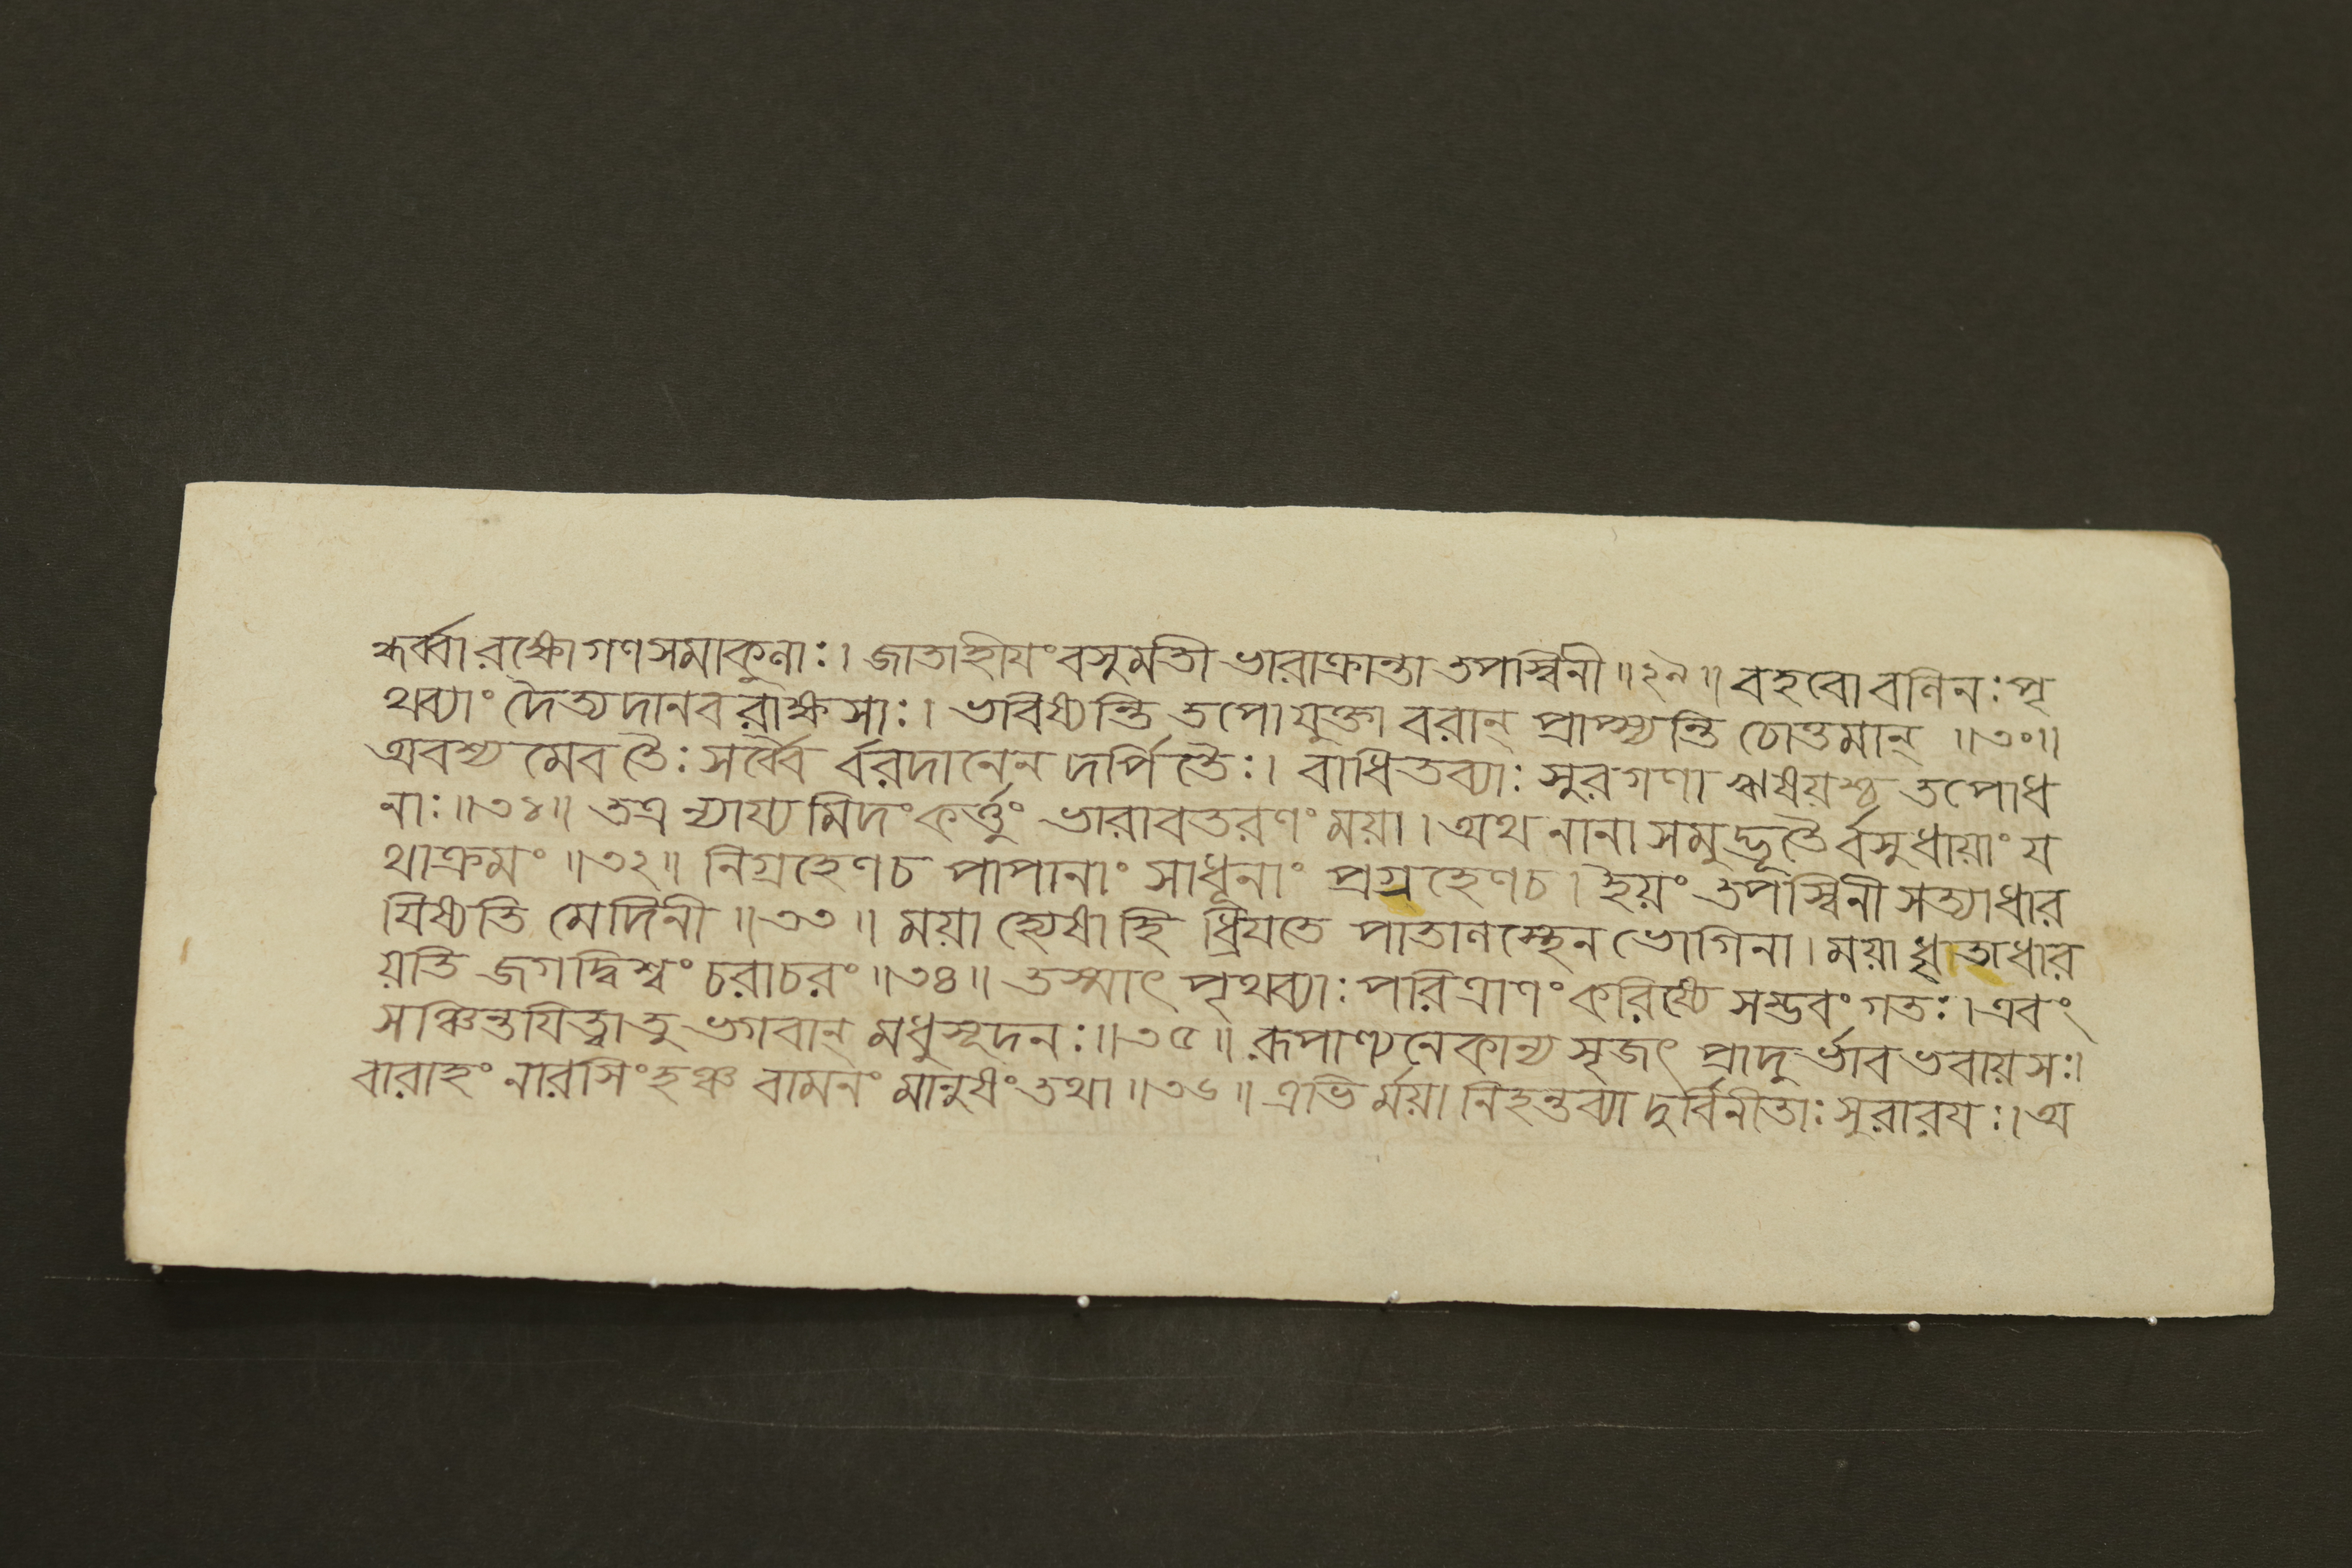 ন্ধর্ব্বারক্ষোগণসমাকুলাঃ। জাতাহীযং বসুমতী ভারাক্রান্তা তপস্বিনী॥২৯॥ বহবো বলিনঃ পৃ
থব্যাং দৈত্যদানব রাক্ষসাঃ। ভবিষ্যন্তি তপোযুক্তা বরান্ প্রাপ্স্যন্তি চোত্তমান্ ॥৩০॥
অবশ্য মেব তৈঃ সর্ব্বৈ র্বরদানেন দর্পিতৈঃ। বাধিতব্যাঃ সুরগণা ঋষয়শ্চ তপোধ
নাঃ॥৩১॥ তত্র ন্যায্য মিদং কর্ত্তুং ভারাবতরণং ময়া। অথ নানা সমুদ্ভূতৈ র্বসুধায়াং য
থাক্রমং ॥৩২॥ নিগ্রহেণচ পাপানাং সাধূনাং প্রগ্রহেণচ। ইয়ং তপস্বিনী সত্যাধার
যিষ্যতি মেদিনী॥৩৩॥ ময়া হ্যেষা হি ধ্রিযতে পাতালস্থেন ভোগিনা। ময়া ধৃতাধার
য়তি জগদ্বিশ্বং চরাচরং॥৩৪॥ তস্মাৎ পৃথব্যাঃ পরিত্রাণং করিষ্যে সম্ভবং গতঃ। এবং
সঞ্চিন্তযিত্বাতু ভগবান্ মধুসূদনঃ॥৩৫॥ রূপাণ্যনেকান্য সৃজৎ প্রাদুর্ভাব ভবায়সঃ।
বারাহং নারসিংহঞ্চ বামনং মানুষং তথা॥৩৬॥ এভি র্ময়া নিহন্তব্যা দুর্বিনীতাঃ সুরারযঃ। অ